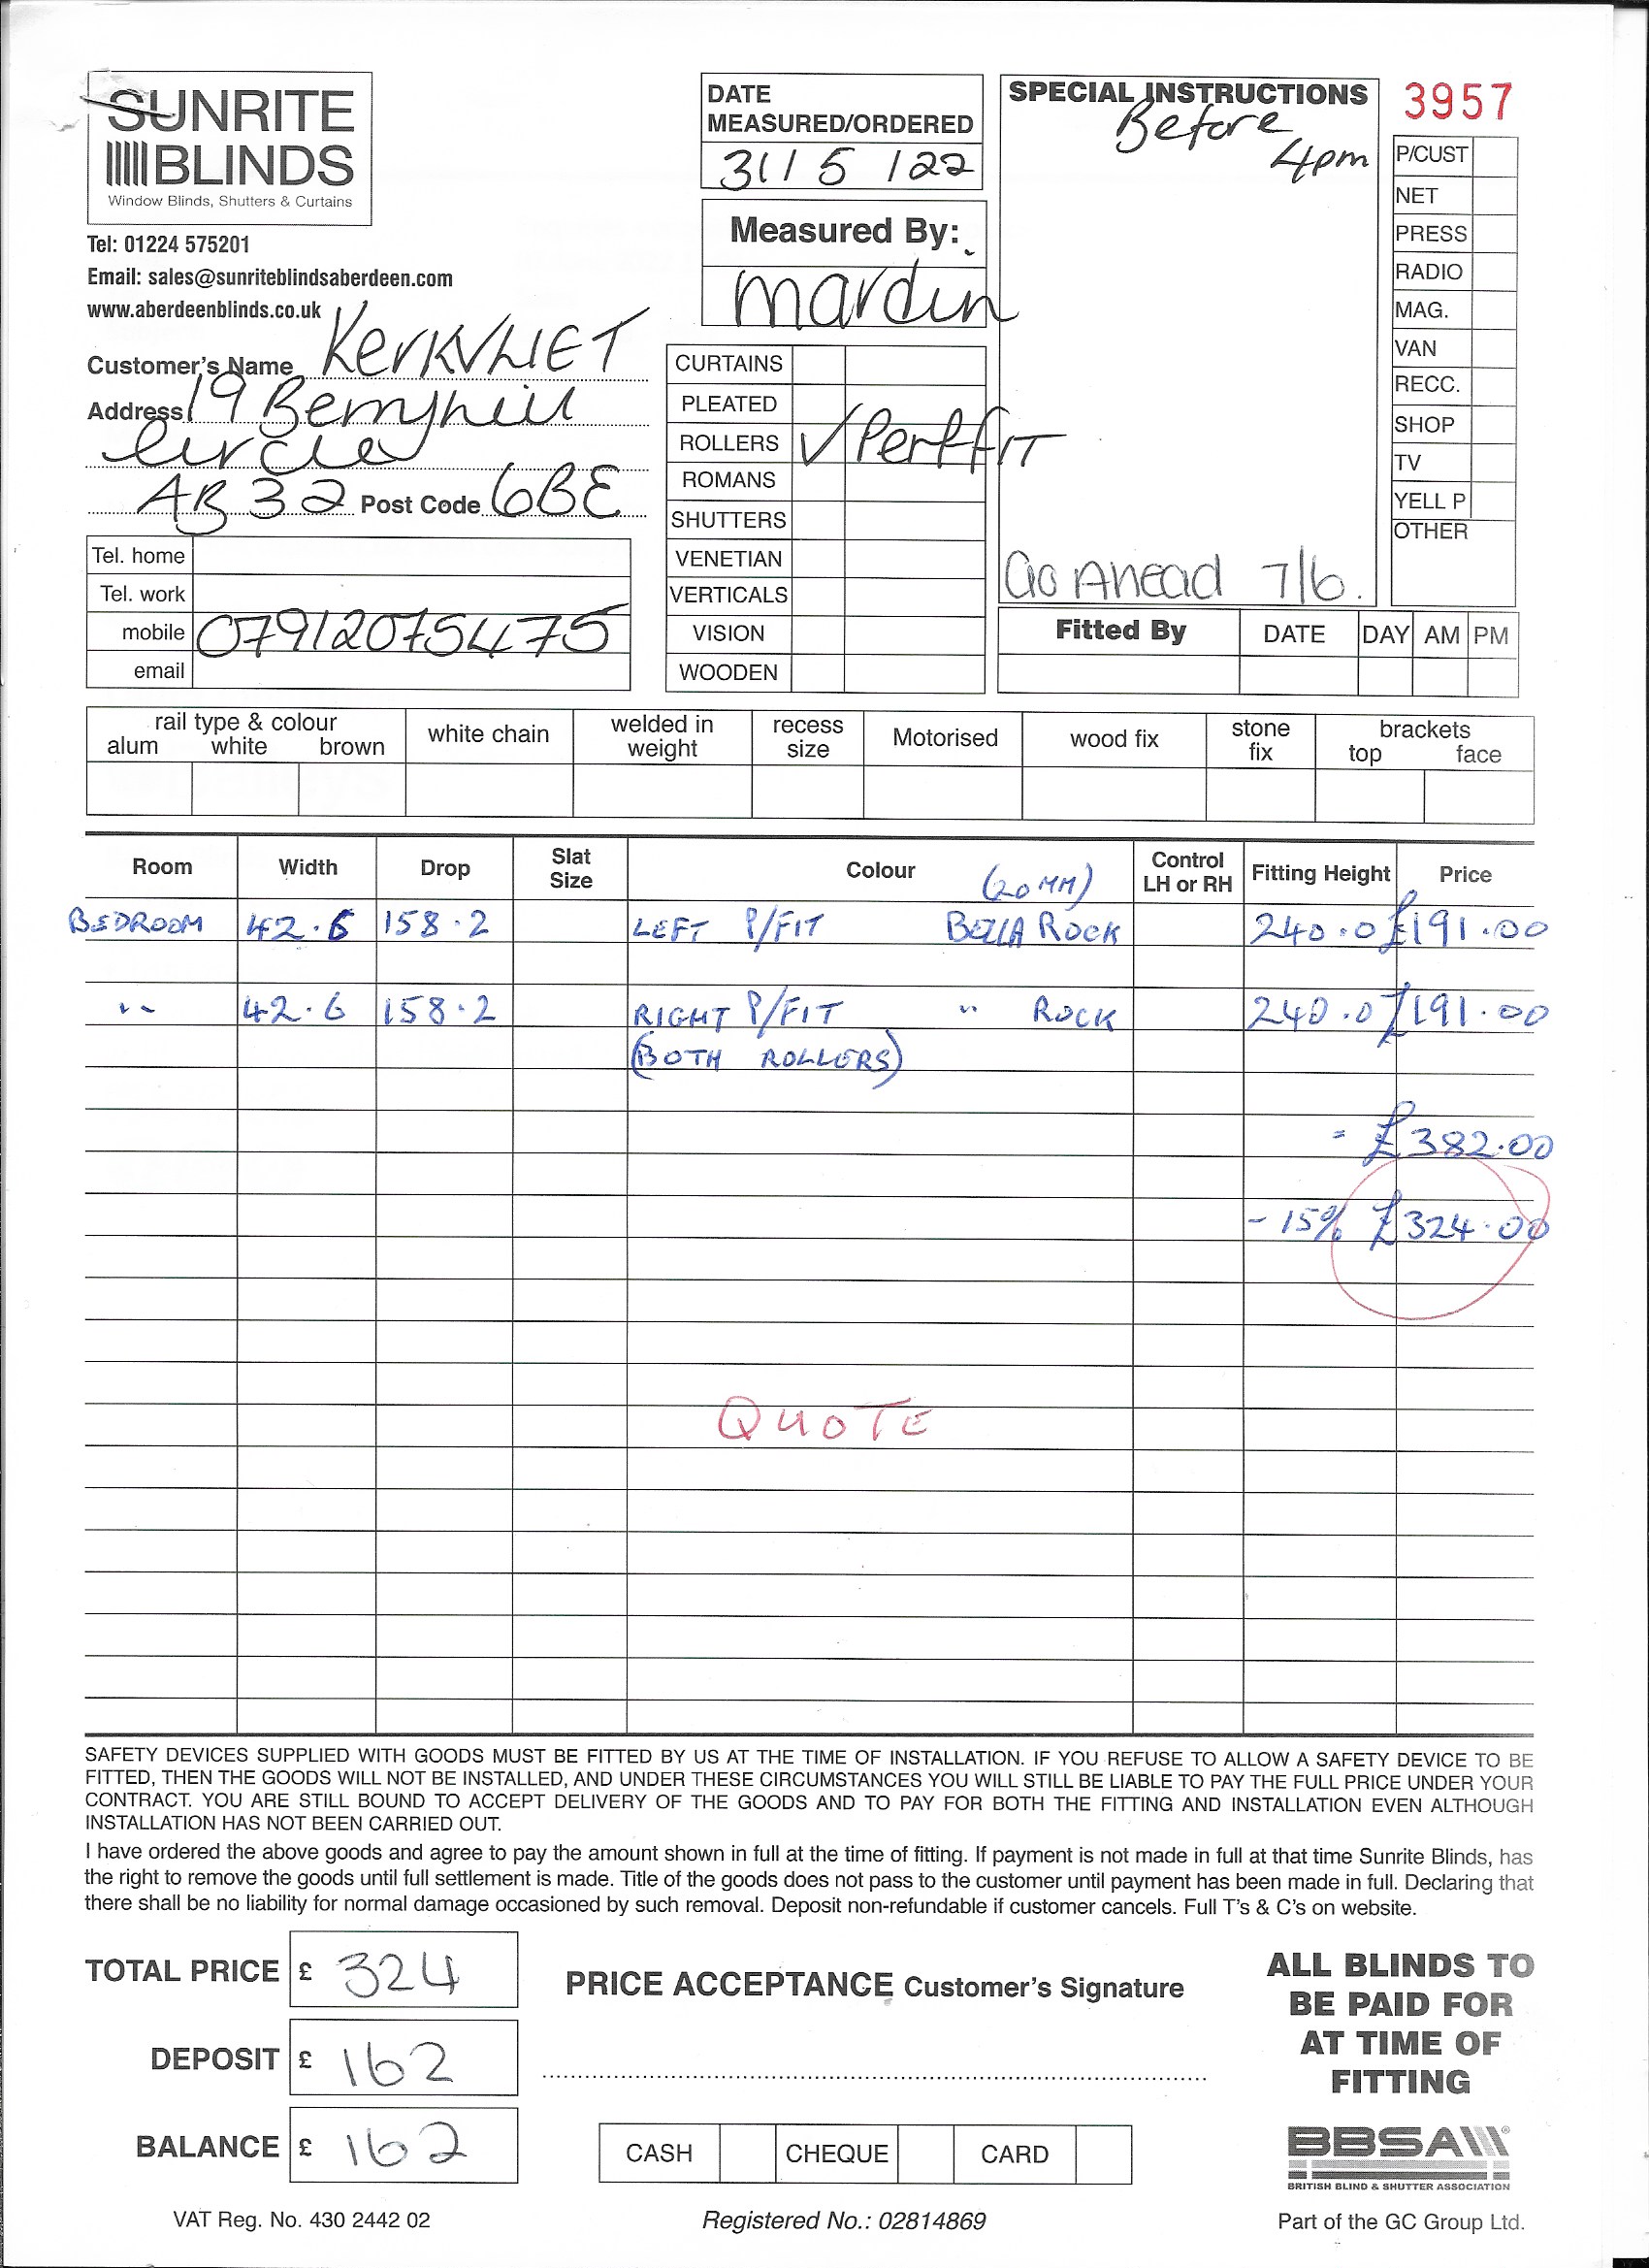 SUNRITE
BLINDS
Window Blinds, Shutters & Curtains
Tel: 01224 575201
Email: sales@sunriteblindsaberdeen.com
www.aberdeenblinds.co.uk
Customer's Name KerKVLIET
Address 19 Berryhill
Circle
AB32 Post Code 6BE
Tel. home
Tel. work
mobile 07912075475
email
DATE
MEASURED/ORDERED
31/5/22
Measured By:
CURTAINS
PLEATED
ROLLERS ✓ PerffIT
ROMANS
SHUTTERS
VENETIAN
VERTICALS
VISION
WOODEN
SPECIAL INSTRUCTIONS
Before
4pm
Go Ahead 7/6.
3957
P/CUST
NET
PRESS
RADIO
MAG.
VAN
RECC.
SHOP
TV
YELL P
OTHER
Fitted By DATE DAY AM PM
rail type & colour
alum white brown
white chain
welded in
weight
recess
size
Motorised
wood fix
stone
fix
brackets
top face
Room Width Drop Slat Size Colour (20MM) Control LH or RH Fitting Height Price
BEDROOM 42.6 158.2 LEFT P/FIT BELLA ROCK 240.0 £191.00
" 42.6 158.2 RIGHT P/FIT " ROCK 240.0 £191.00
(BOTH ROLLERS)
= £382.00
- 15% £324.00
QUOTE
SAFETY DEVICES SUPPLIED WITH GOODS MUST BE FITTED BY US AT THE TIME OF INSTALLATION. IF YOU REFUSE TO ALLOW A SAFETY DEVICE TO BE
FITTED, THEN THE GOODS WILL NOT BE INSTALLED, AND UNDER THESE CIRCUMSTANCES YOU WILL STILL BE LIABLE TO PAY THE FULL PRICE UNDER YOUR
CONTRACT. YOU ARE STILL BOUND TO ACCEPT DELIVERY OF THE GOODS AND TO PAY FOR BOTH THE FITTING AND INSTALLATION EVEN ALTHOUGH
INSTALLATION HAS NOT BEEN CARRIED OUT.
I have ordered the above goods and agree to pay the amount shown in full at the time of fitting. If payment is not made in full at that time Sunrite Blinds, has
the right to remove the goods until full settlement is made. Title of the goods does not pass to the customer until payment has been made in full. Declaring that
there shall be no liability for normal damage occasioned by such removal. Deposit non-refundable if customer cancels. Full T's & C's on website.
TOTAL PRICE £ 324
DEPOSIT £ 162
BALANCE £ 162
PRICE ACCEPTANCE Customer's Signature
CASH CHEQUE CARD
ALL BLINDS TO
BE PAID FOR
AT TIME OF
FITTING
BBSA
BRITISH BLIND & SHUTTER ASSOCIATION
VAT Reg. No. 430 2442 02
Registered No.: 02814869
Part of the GC Group Ltd.